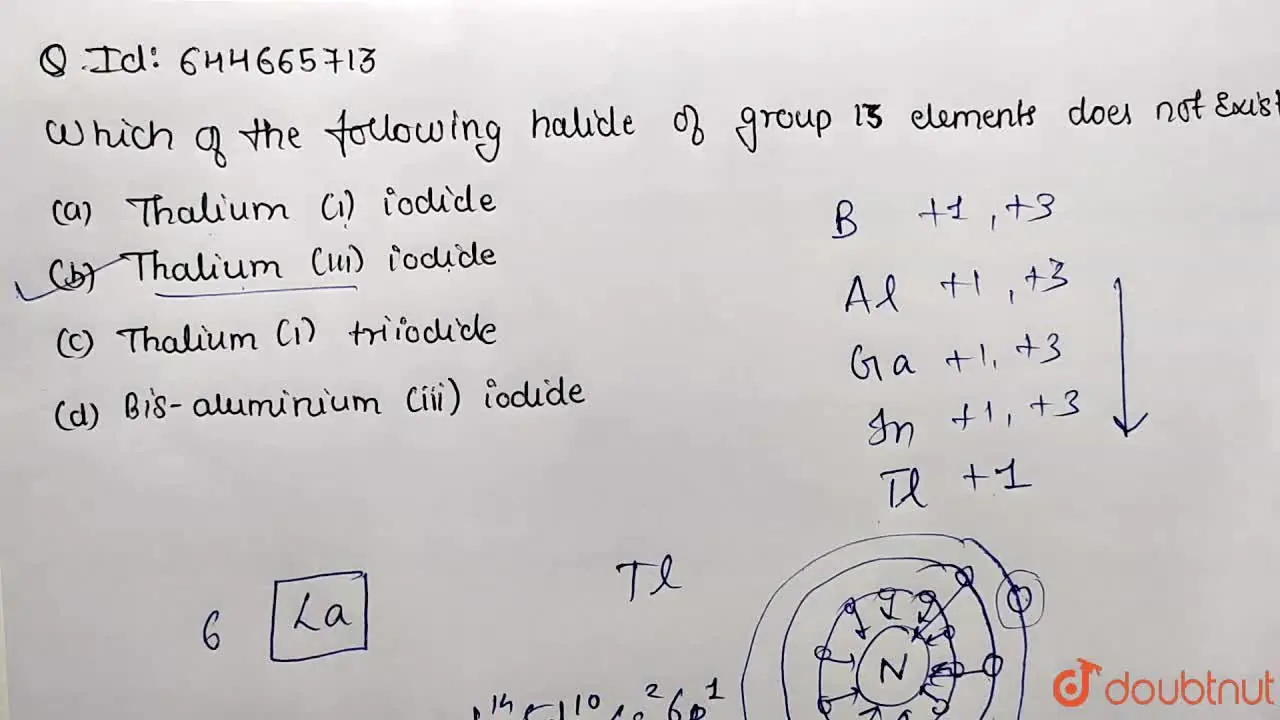 Q.Id: 644665713
Which of the following halide of group 13 elements does not Exist
(a) Thalium (1) iodide
(b) Thalium (III) iodide
(c) Thalium (1) triiodide
(d) Bis-aluminium (iii) iodide
B +1, +3
Al +1, +3
Ga +1, +3
In +1, +3
Tl +1
Tl
6 La
N
14 5d10 6s2 6p1
doubtnut